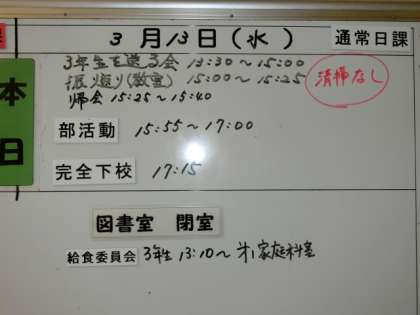 3月13日(水) 通常日課
3年生を送る会 13:30〜15:00
振返り(教室) 15:00〜15:25
清掃なし
帰会 15:25〜15:40
本日
部活動 15:55〜17:00
完全下校 17:15
図書室 閉室
給食委員会 3年生 13:10〜 オ1家庭科室